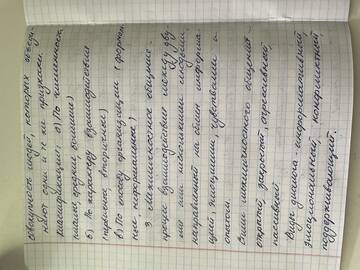 совокупность людей, которых объеди-
няют одни и те же признаки.
Классификация: а) По численности
(малые, средние, большие)
б) По характеру взаимодействия
(первичные, вторичные)
в) По способу организации (формаль-
ные, неформальные)
3. Межличностное общение -
процесс взаимодействия между дву-
мя или несколькими людьми,
направленный на обмен информа
цией, эмоциями, чувствами и
опытом.
Стили межличностного общения -
открытый, закрытый, агрессивный,
пассивный
Виды диалога информативный,
эмоциональный, конфликтный,
поддерживающий.